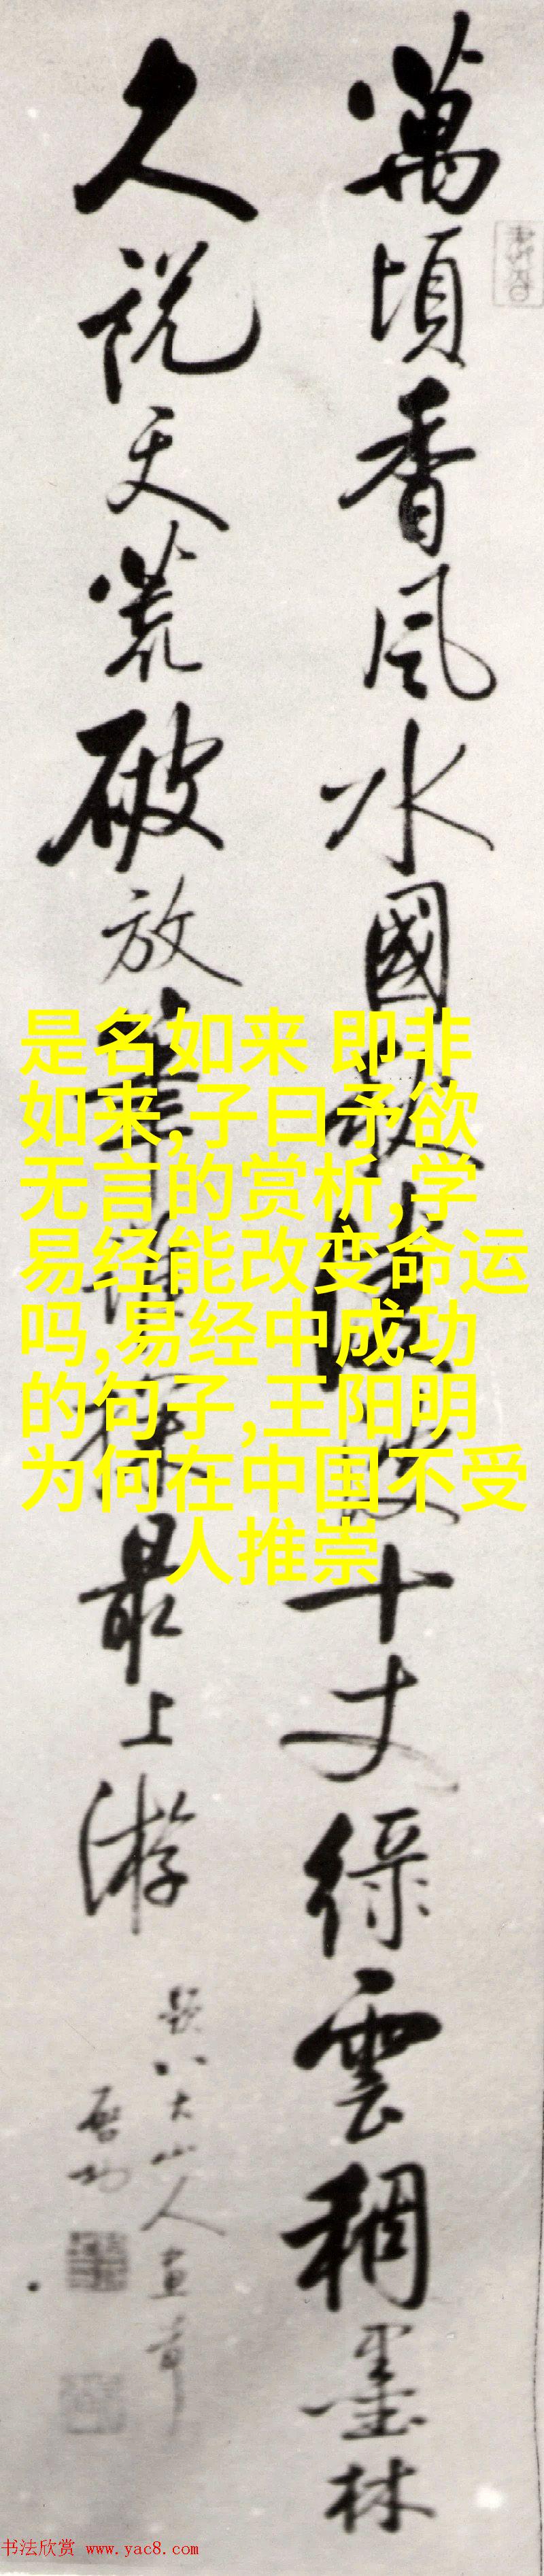 萬頃香風水國秋十丈綠雲稠墨林
久說天荒破放筆誰探最上游
題八大山人畫
啓功
是名如来 即非
如来,子曰予欲
无言的赏析,学
易经能改变命运
吗,易经中成功
的句子,王阳明
为何在中国不受
人推崇
书法欣赏 www.yac8.com